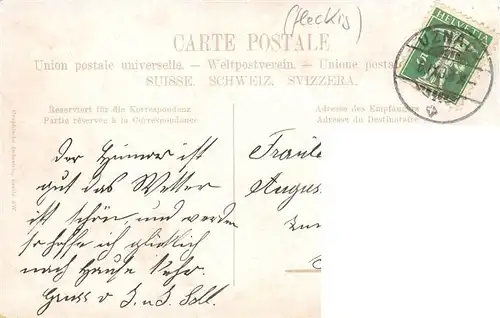 (fleckig)
HELVETIA
UZNA
CARTE POSTALE
Union postale universelle. – Weltpostverein. – Unione posta
SUISSE. SCHWEIZ. SVIZZERA.
Reserviert für die Korrespondenz
Partie réservée à la Correspondance
Adresse des Empfänge
Adresse du Destinataire
Der Humor ist
gut das Wetter
ist schön, und werden
so hoffe ich glücklich
nach Hause kehr.
Gruss v J. u. J. Soll.
Fraule
Augus